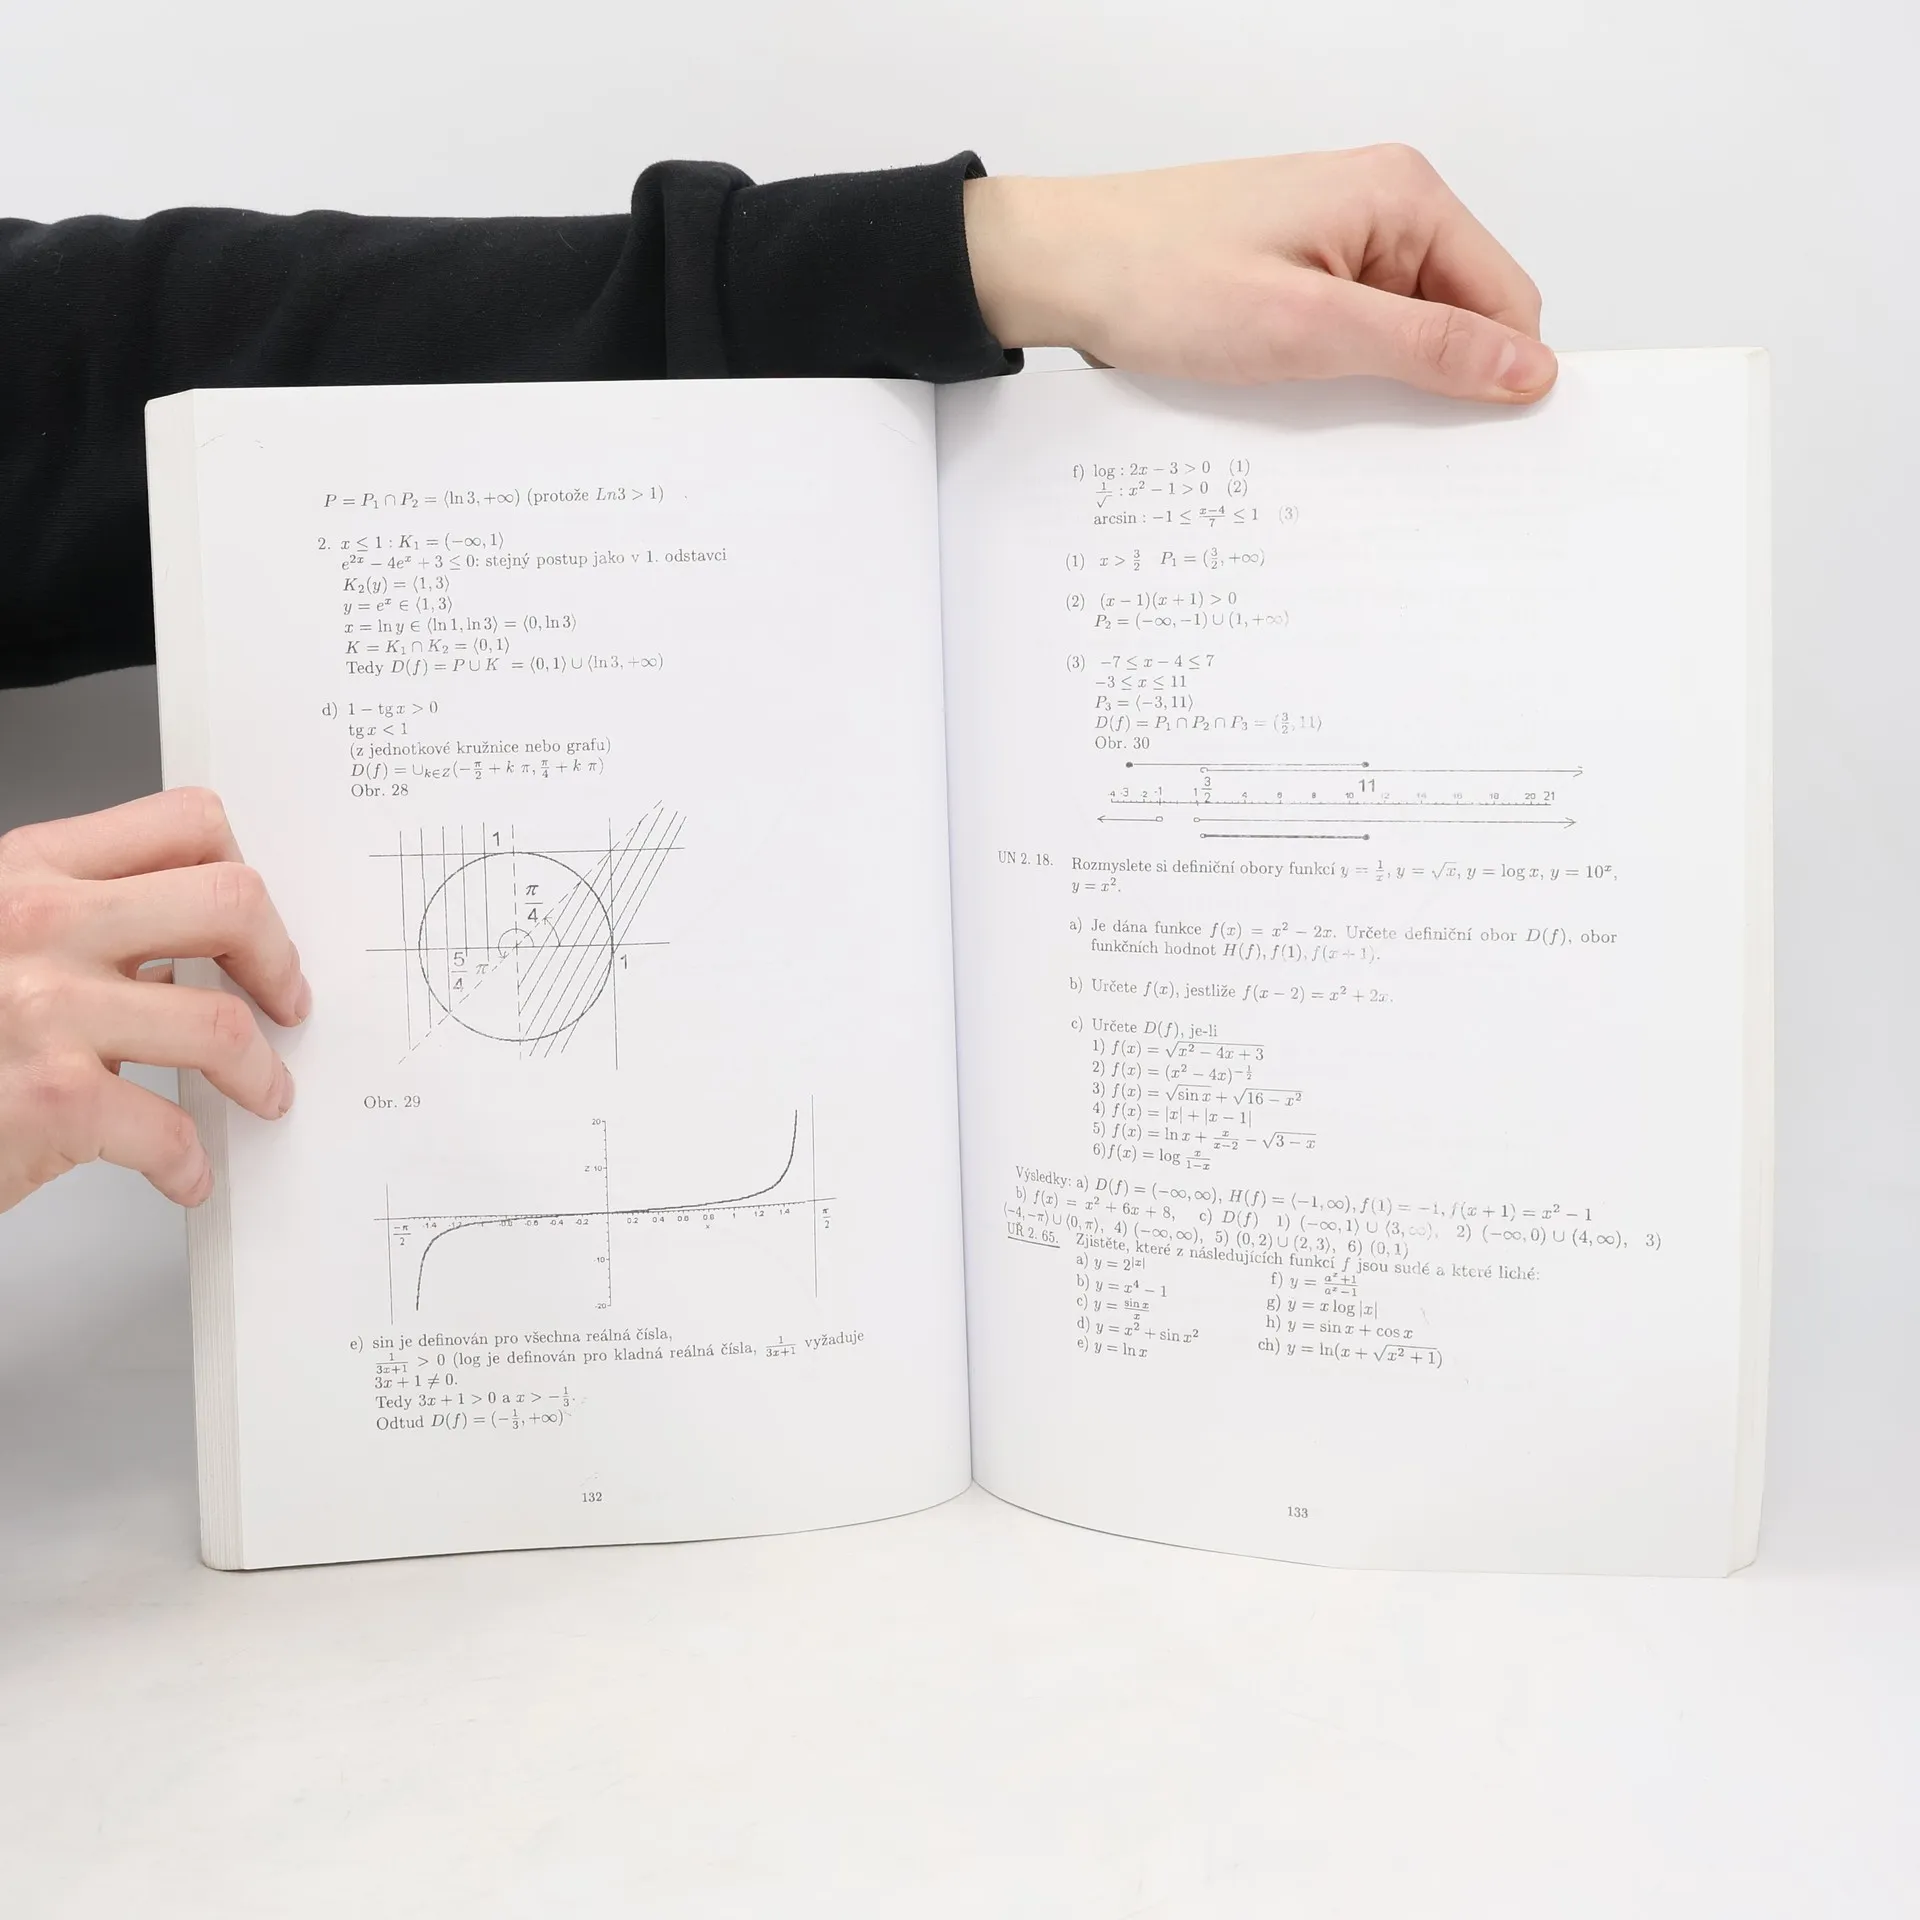 P = P₁ ∩ P₂ = ⟨ln 3, +∞) (protože Ln3 > 1)
2. x ≤ 1 : K₁ = (−∞, 1⟩
e²ˣ − 4eˣ + 3 ≤ 0: stejný postup jako v 1. odstavci
K₂(y) = ⟨1, 3⟩
y = eˣ ∈ ⟨1, 3⟩
x = ln y ∈ ⟨ln 1, ln 3⟩ = ⟨0, ln 3⟩
K = K₁ ∩ K₂ = ⟨0, 1⟩
Tedy D(f) = P ∪ K = ⟨0, 1⟩ ∪ ⟨ln 3, +∞)
d) 1 − tg x > 0
tg x < 1
(z jednotkové kružnice nebo grafu)
D(f) = ∪k∈Z(−π/2 + k π, π/4 + k π)
Obr. 28
1
π/4
5/4 π
1
Obr. 29
20
z 10
−π/2 -1.4 -1.2 -1 -0.8 -0.6 -0.4 -0.2 0.2 0.4 0.6 0.8 1 1.2 1.4 π/2
x
-10
-20
e) sin je definován pro všechna reálná čísla,
1/(3x+1) > 0 (log je definován pro kladná reálná čísla, 1/(3x+1) vyžaduje
3x + 1 ≠ 0.
Tedy 3x + 1 > 0 a x > −1/3.
Odtud D(f) = (−1/3, +∞)
132
f) log : 2x − 3 > 0 (1)
1/√ : x² − 1 > 0 (2)
arcsin : −1 ≤ (x−4)/7 ≤ 1 (3)
(1) x > 3/2 P₁ = (3/2, +∞)
(2) (x − 1)(x + 1) > 0
P₂ = (−∞, −1) ∪ (1, +∞)
(3) −7 ≤ x − 4 ≤ 7
−3 ≤ x ≤ 11
P₃ = ⟨−3, 11⟩
D(f) = P₁ ∩ P₂ ∩ P₃ = (3/2, 11⟩
Obr. 30
-4 -3 -2 -1 1 3/2 2 4 6 8 10 11 12 14 16 18 20 21
UN 2. 18. Rozmyslete si definiční obory funkcí y = 1/x, y = √x, y = log x, y = 10ˣ,
y = x².
a) Je dána funkce f(x) = x² − 2x. Určete definiční obor D(f), obor
funkčních hodnot H(f), f(1), f(x + 1).
b) Určete f(x), jestliže f(x − 2) = x² + 2x.
c) Určete D(f), je-li
1) f(x) = √(x² − 4x + 3)
2) f(x) = (x² − 4x)^(−1/2)
3) f(x) = √(sin x) + √(16 − x²)
4) f(x) = |x| + |x − 1|
5) f(x) = ln x + x/(x−2) − √(3 − x)
6)f(x) = log x/(1−x)
Výsledky: a) D(f) = (−∞, ∞), H(f) = ⟨−1, ∞), f(1) = −1, f(x + 1) = x² − 1
b) f(x) = x² + 6x + 8, c) D(f) 1) (−∞, 1⟩ ∪ ⟨3, ∞), 2) (−∞, 0) ∪ (4, ∞), 3)
⟨−4, −π⟩ ∪ ⟨0, π⟩, 4) (−∞, ∞), 5) (0, 2) ∪ (2, 3⟩, 6) (0, 1)
UŘ 2. 65. Zjistěte, které z následujících funkcí f jsou sudé a které liché:
a) y = 2^|x|
b) y = x⁴ − 1
c) y = sin x/x
d) y = x² + sin x²
e) y = ln x
f) y = (aˣ+1)/(aˣ−1)
g) y = x log |x|
h) y = sin x + cos x
ch) y = ln(x + √(x² + 1))
133